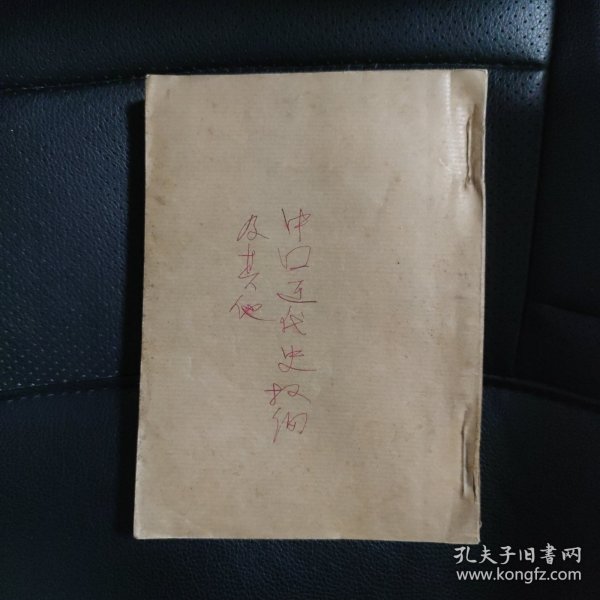 中口近代史叔佃
及其他
孔夫子旧書网
www.kongfz.com